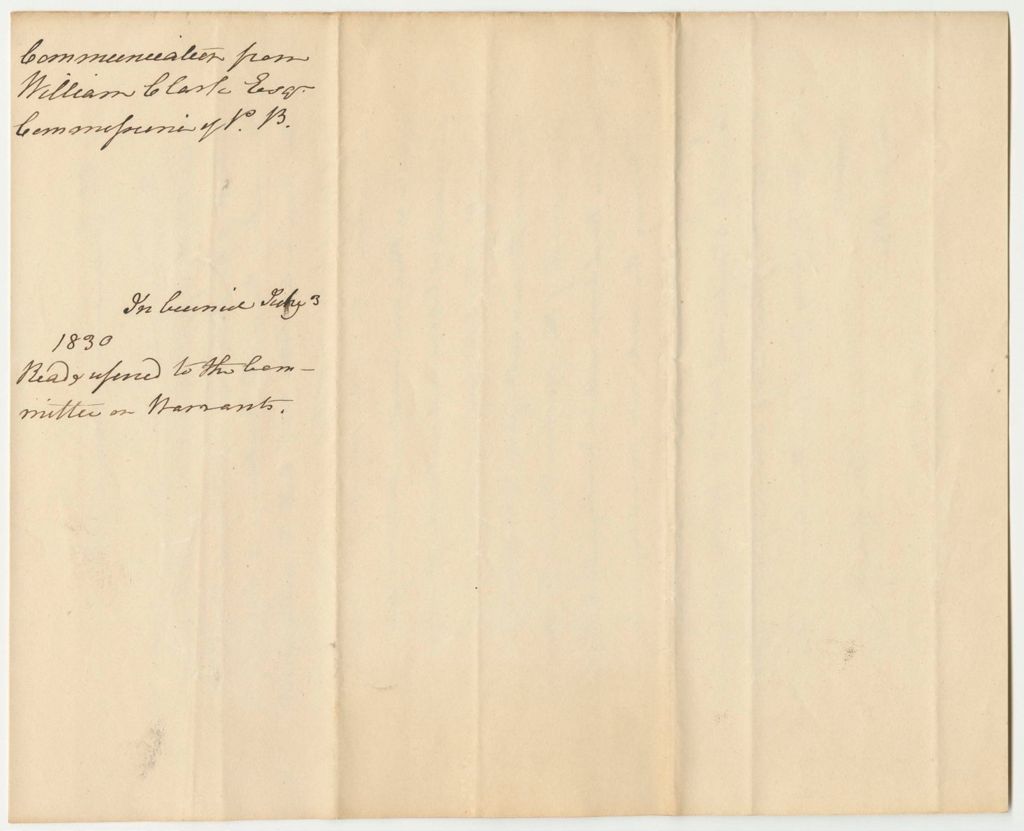 Communication from
William Clark Esqr
Commissioner of P. B.
In Council July 3
1830
Read & referred to the Com-
mittee on Warrants.